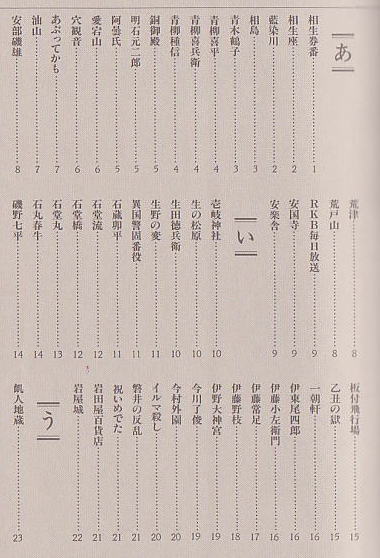 あ
相生券番 1
相生座 2
藍染川 2
相島 3
青木鶴子 3
青柳喜平 3
青柳喜兵衛 4
青柳種信 4
銅御殿 5
明石元二郎 5
阿曇氏 5
愛宕山 6
穴観音 6
あぶってかも 7
油山 7
安部磯雄 8
荒津 8
荒戸山 8
RKB毎日放送 9
安国寺 9
安楽舎 9
い
壱岐神社 10
生の松原 10
生田徳兵衛 10
生野の変 11
異国警固番役 11
石蔵卯平 11
石堂流 12
石堂橋 12
石堂丸 13
石丸春牛 14
磯野七平 14
板付飛行場 15
乙丑の獄 15
一朝軒 16
伊東尾四郎 16
伊藤小左衛門 16
伊藤常足 17
伊藤野枝 18
伊野大神宮 19
今川了俊 19
今村外園 20
イルマ殺し 20
磐井の反乱 21
祝いめでた 21
岩田屋百貨店 21
岩屋城 22
う
飢人地蔵 23